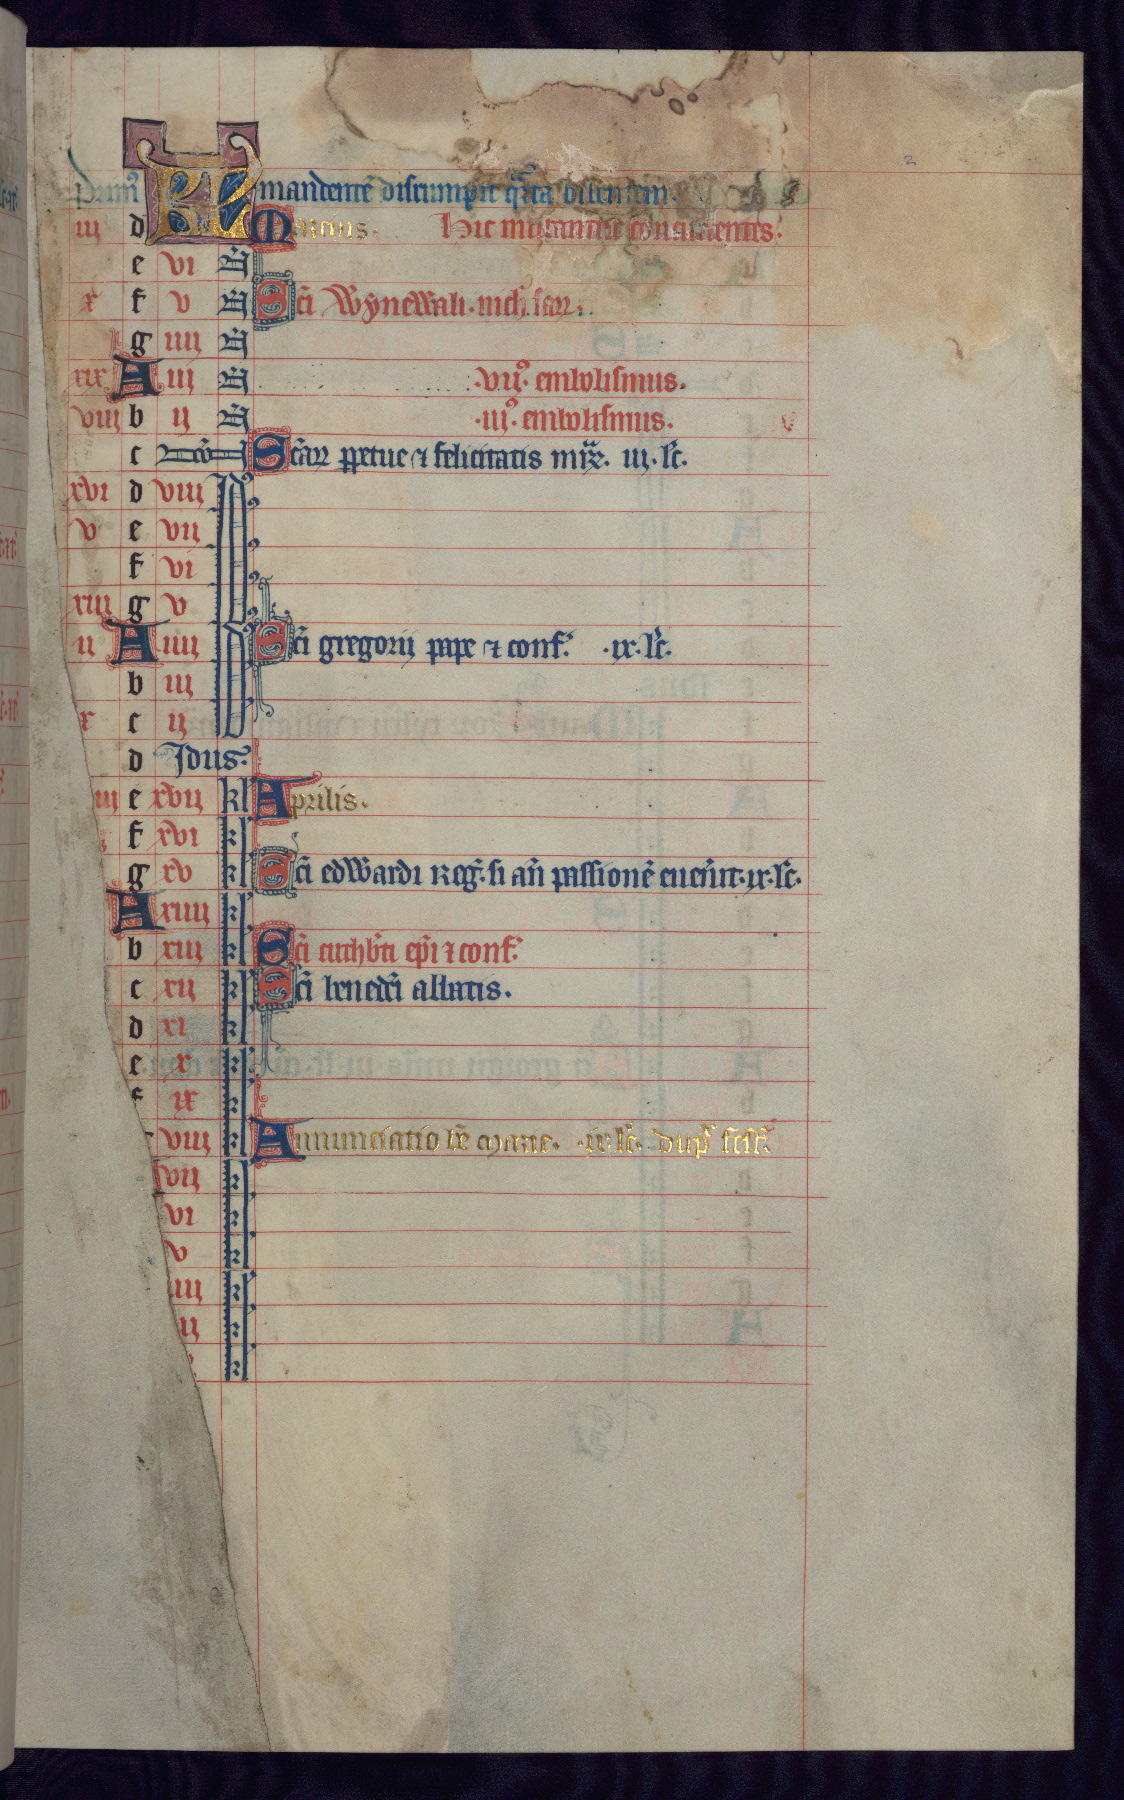 Primꝰ mandentē disrumpit qͣrta bibentem.
iii d Marcius. Hic mutantur concurrentes.
e vi N
x f v N Sci Wynewali. nich. sar.
g iiii N
xix A iii N .vii⁹. embolismus.
viii b ii N .iii⁹. embolismus.
c Non Scar̄ ꝑpetue ⁊ felicitatis mr̄x. iii. lc̄.
xvi d viii Id
v e vii
f vi
xiii g v
ii A iiii Id Sci gregorii pape ⁊ conf. .ix. lc̄.
b iii
x c ii
d Idus.
e xvii kl Aprilis.
f xvi kl
g xv kl Sci edwardi Reg̃. si an̄ passionē euen̄it. ix. lc̄.
A xiiii kl
b xiii kl Sci cuthb̄ti ep̄i ⁊ conf.
c xii kl Sci bened̄ci abbatis.
d xi kl
e x kl
f ix kl
viii kl Annunciatio bē marie. .ix. lc̄. dup̄ fest̄.
vii kl
vi kl
v kl
iiii kl
kl
kl
2